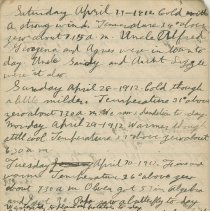 Saturday April 27-1912. Cold with
a strong wind. Temperature 34° above
zero about 7.15 a.m. Uncle Alfred
Georgina and Agnes were in town to
day. Uncle Sandy and Aunt Lizzie
were at
Sunday April 28-1912. Cold though
a little milder. Temperature 32° above
zero about 7.30 a.m. to day
Monday April 29-1912 Warmer though
still cool Temperature above zero about
6.30 a.m.
Tuesday April 30-1912. Fine and
warm Temperature 36° above zero
about 7.30 a.m. Oliver got 57 in algebra
and saw a butterfly to day